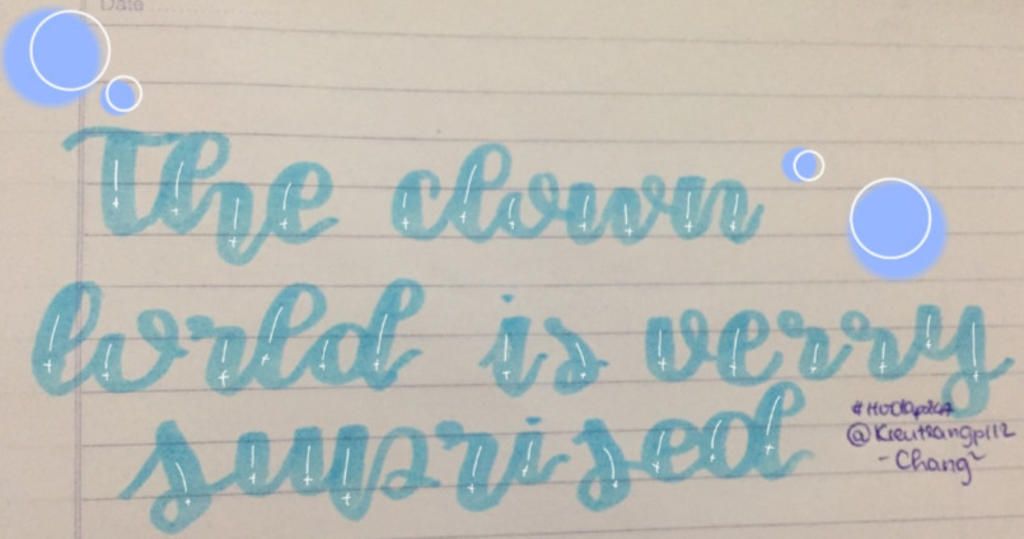 Date
The clown
lorld is verry
suprised
@Kieutrangp112
~Chang~